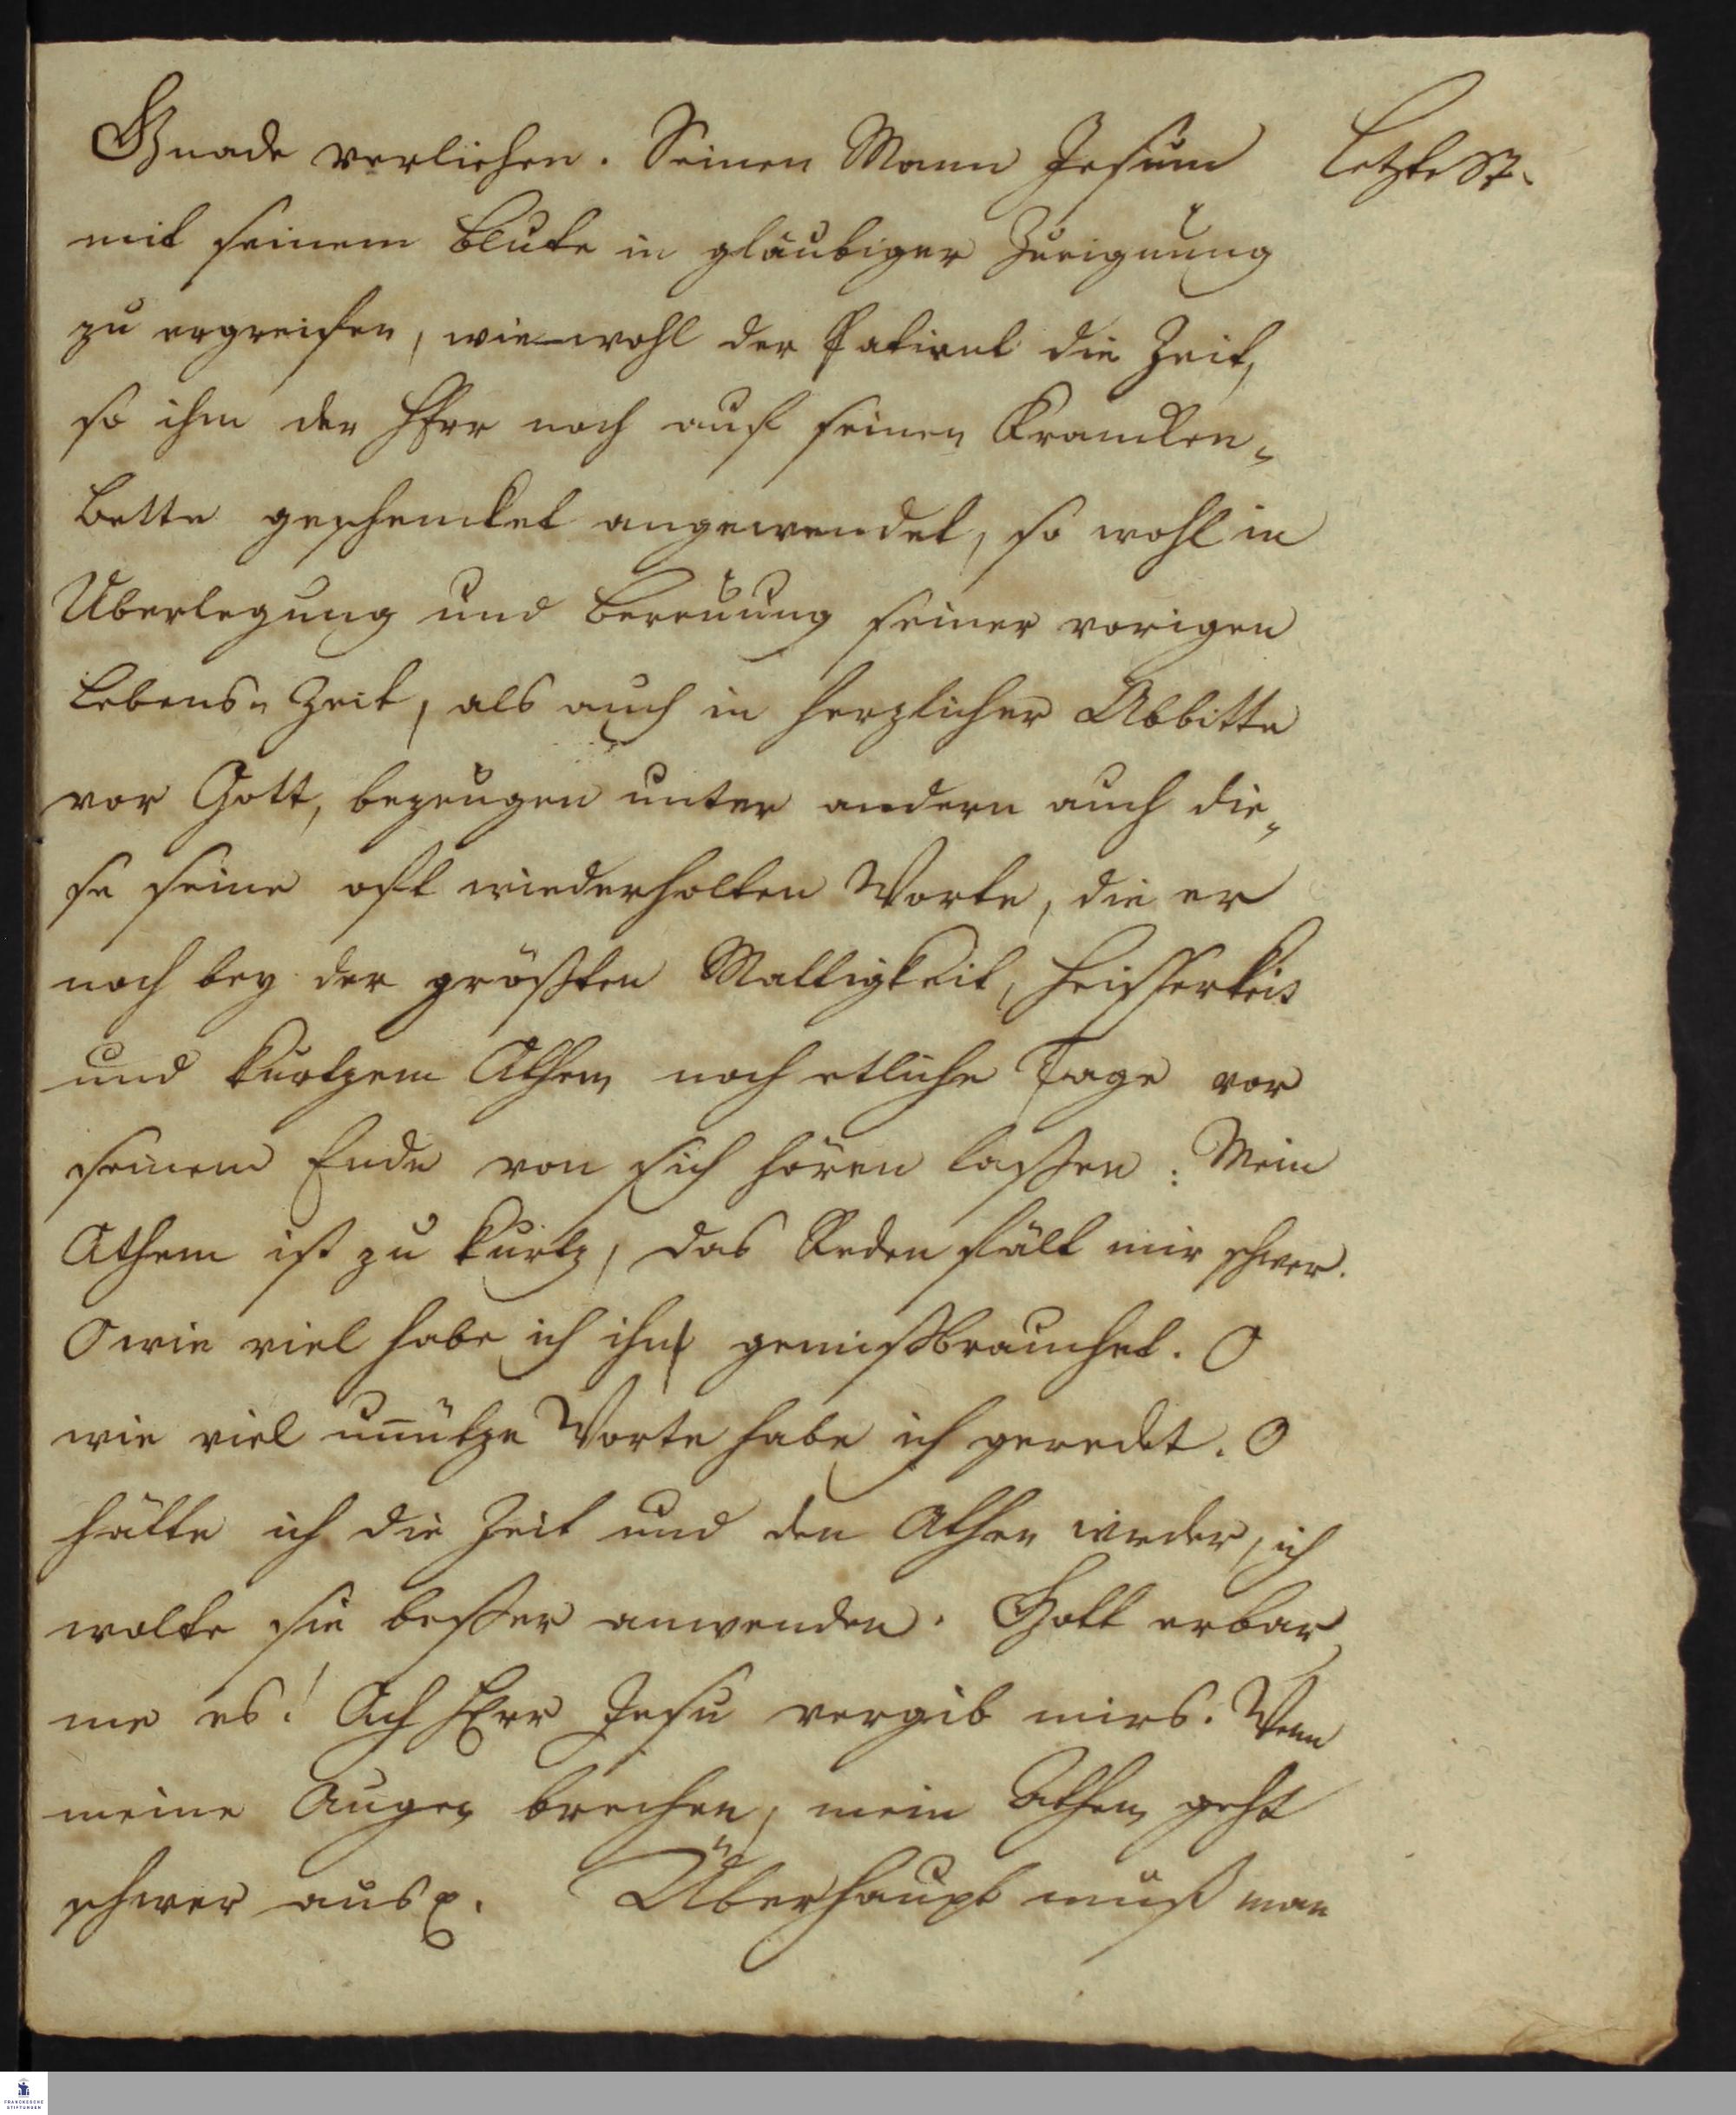 Gnade verliehen. Seinen Mann Jesum
letzte St.
mit seinem Blute in gläubiger Zueignung
zu ergreifen, wie-wohl der Patient die Zeit,
so ihm der HErr noch auf seinen Krancken-
Bette geschencket angewendet, so wohl in
Uberlegung und Bereuung seiner vorigen
Lebens-Zeit, als auch in herzlicher Abbitte
vor Gott, bezeugen unter andern auch die-
se seine oft wiederholten Worte, die er
noch bey der größten Mattigkeit, Heisserkeit
und kurtzem Athem noch etliche Tage vor
seinem Ende von sich hören laßen: Mein
Athem ist zu kurtz, das Reden fält mir schwer.
O wie viel habe ich ihn gemißbrauchet. O
wie viel un̄ütze Worte habe ich geredet. O
hätte ich die Zeit und den Athen wieder, ich
wolte sie beßer anwenden. Gott erbar
me es! Ach HErr Jesu vergib mirs. Wenn
meine Augen brechen, mein Athem geht
schwer aus p. Überhaupt muß man
FRANCKESCHE
STIFTUNGEN